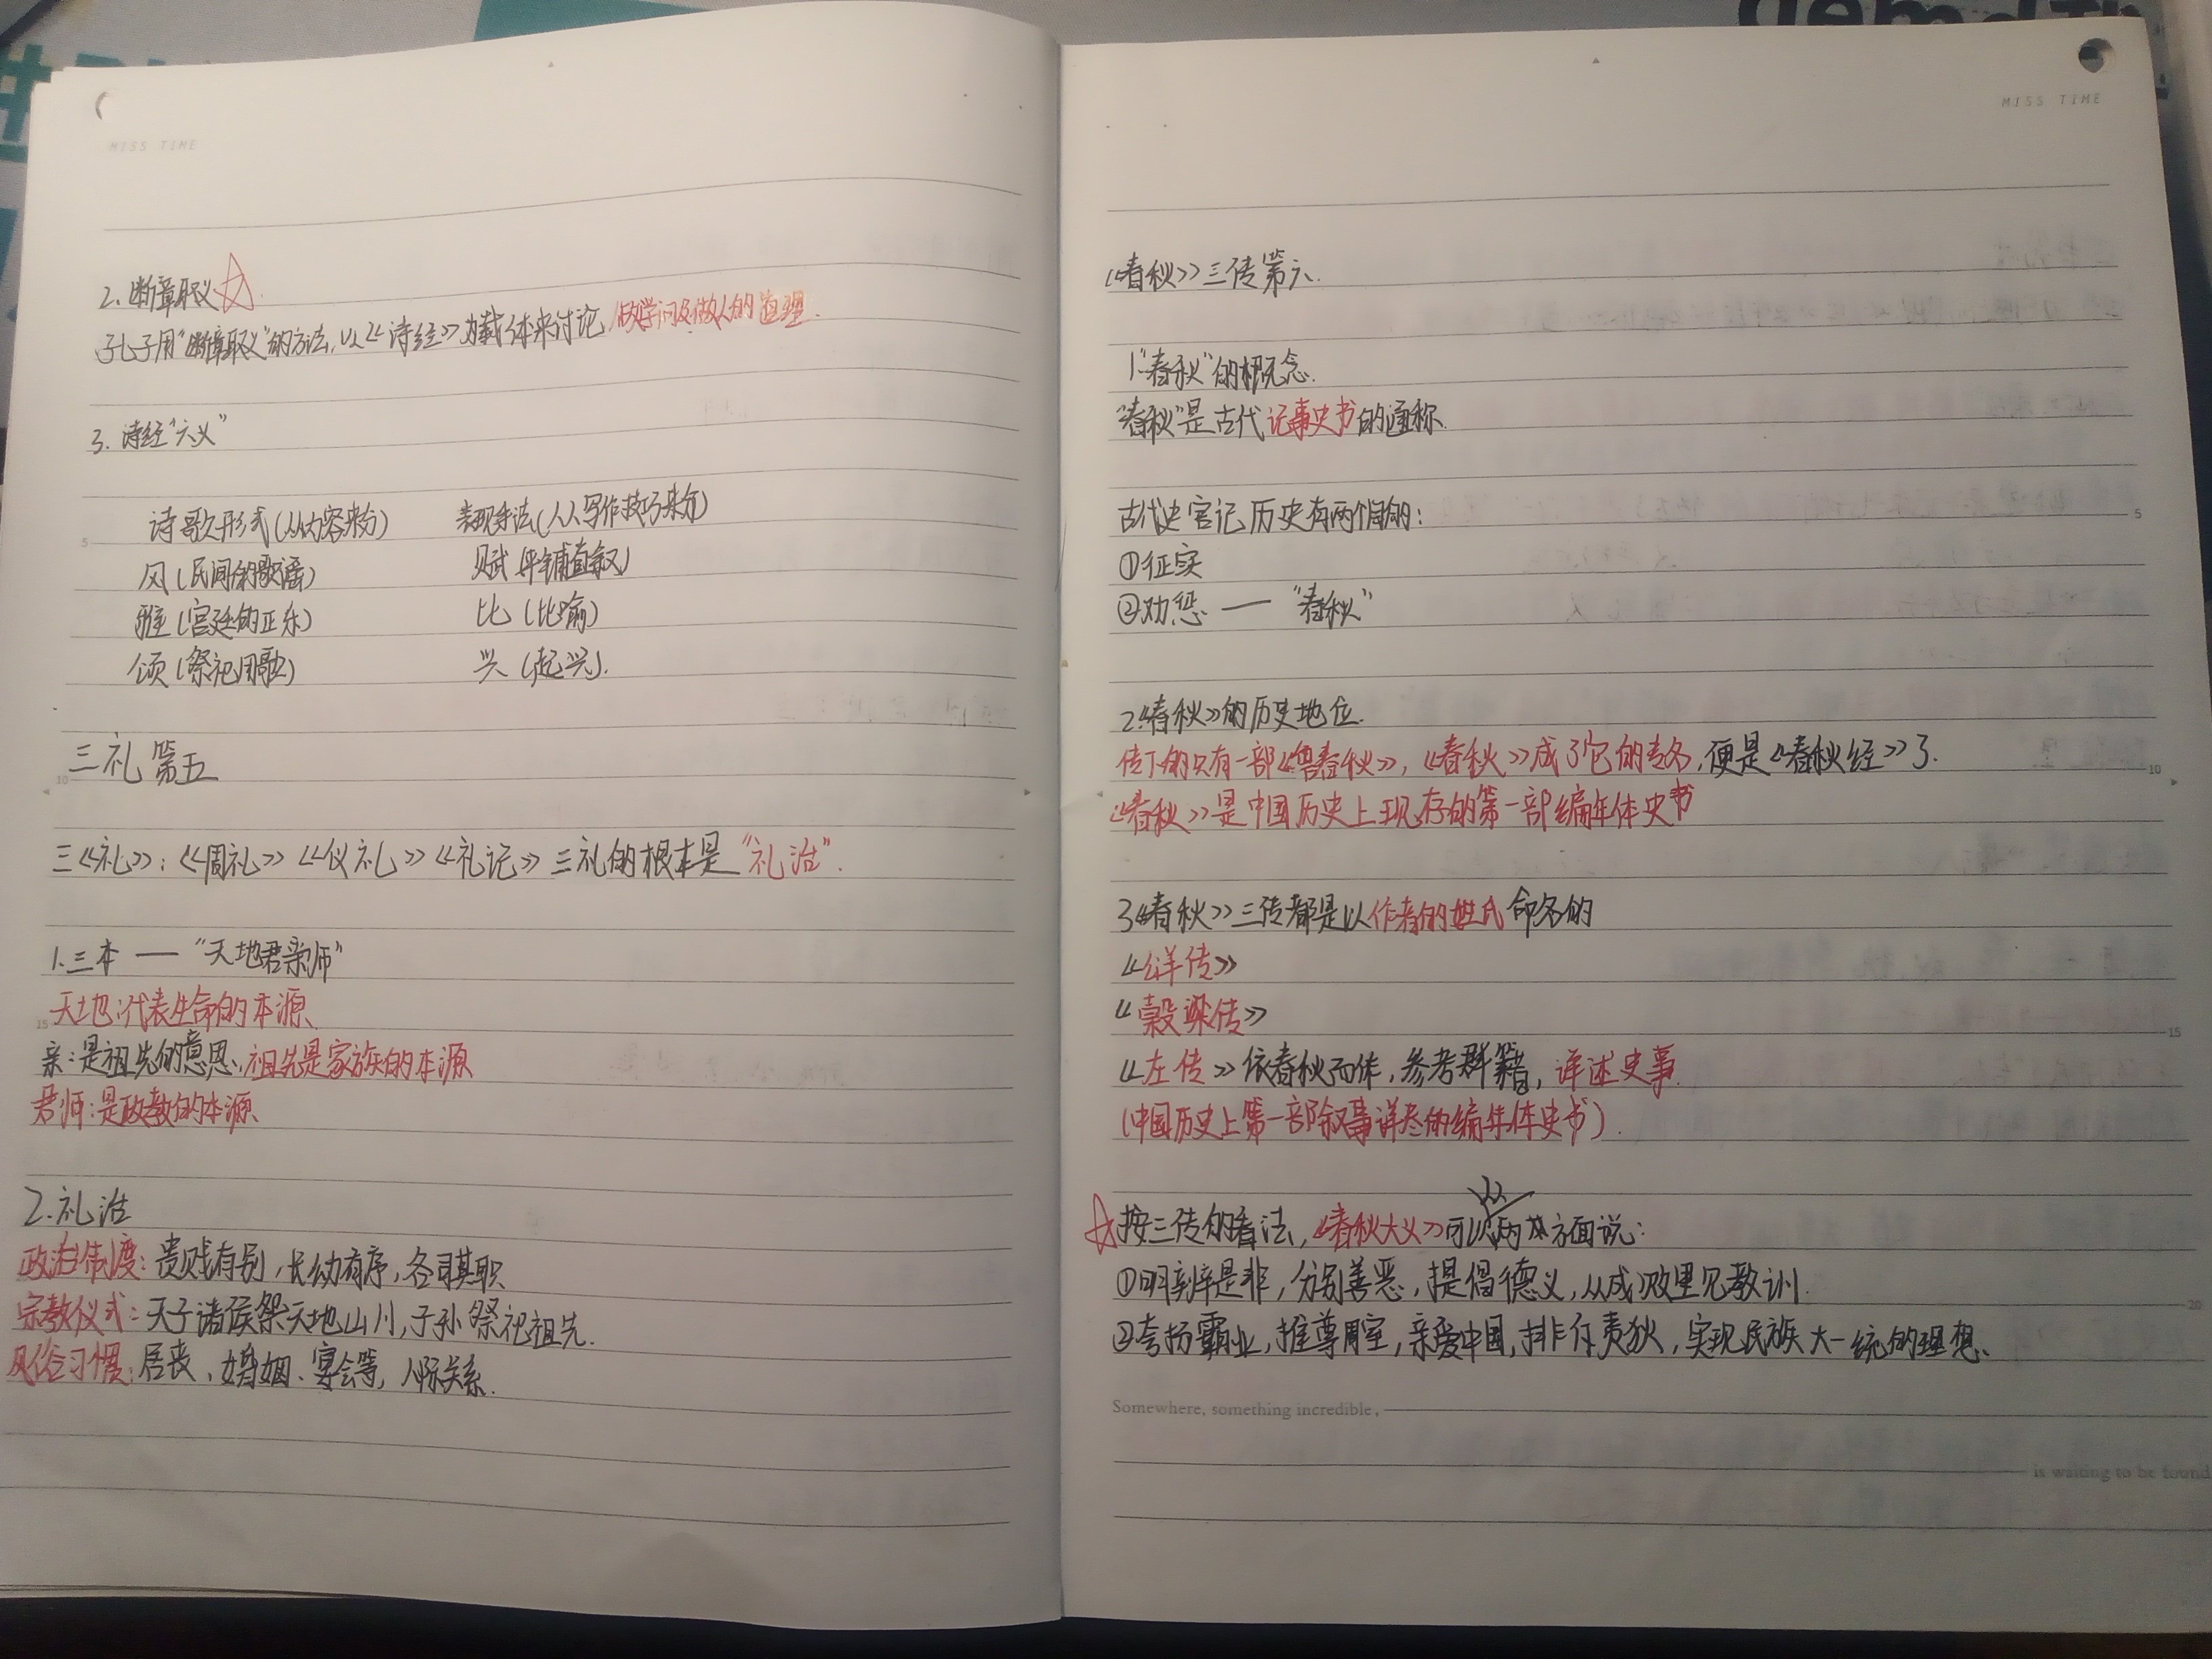 MISS TIME
2. 断章取义
孔子用"断章取义"的方法,以《诗经》为载体来讨论做学问及做人的道理.
3. 诗经"六义"
诗歌形式(从内容来分) 表现手法(从写作技巧来分)
风(民间的歌谣) 赋(平铺直叙)
雅(宫廷的正乐) 比(比喻)
颂(祭祀用歌) 兴(起兴).
三礼第五
三《礼》:《周礼》《仪礼》《礼记》三礼的根本是"礼治".
1.三本 — "天地君亲师"
天地:代表生命的本源
亲:是祖先的意思,祖先是家族的本源
君师:是政教的本源
2.礼治
政治制度:贵贱有别,长幼有序,各司其职
宗教仪式:天子诸侯祭天地山川,子孙祭祀祖先.
风俗习惯:居丧、婚姻、宴会等,人际关系.
5
10
15
MISS TIME
《春秋》三传第六.
1."春秋"的概念.
"春秋"是古代记事史书的通称.
古代史官记历史有两个目的:
①征实
②劝惩 — "春秋"
2.《春秋》的历史地位.
传下的只有一部《鲁春秋》,《春秋》成了它的专名,便是《春秋经》了.
《春秋》是中国历史上现存的第一部编年体史书
3《春秋》三传都是以作者的姓氏命名的
《公羊传》
《穀梁传》
《左传》依春秋而作,参考群籍,详述史事.
(中国历史上第一部叙事详尽的编年体史书).
按三传的看法,《春秋大义》可以从两方面说:
①明辨是非,分别善恶,提倡德义,从成败里见教训.
②夸扬霸业,推尊周室,亲爱中国,排斥夷狄,实现民族大一统的理想.
Somewhere, something incredible,
is waiting to be found
5
10
15
20